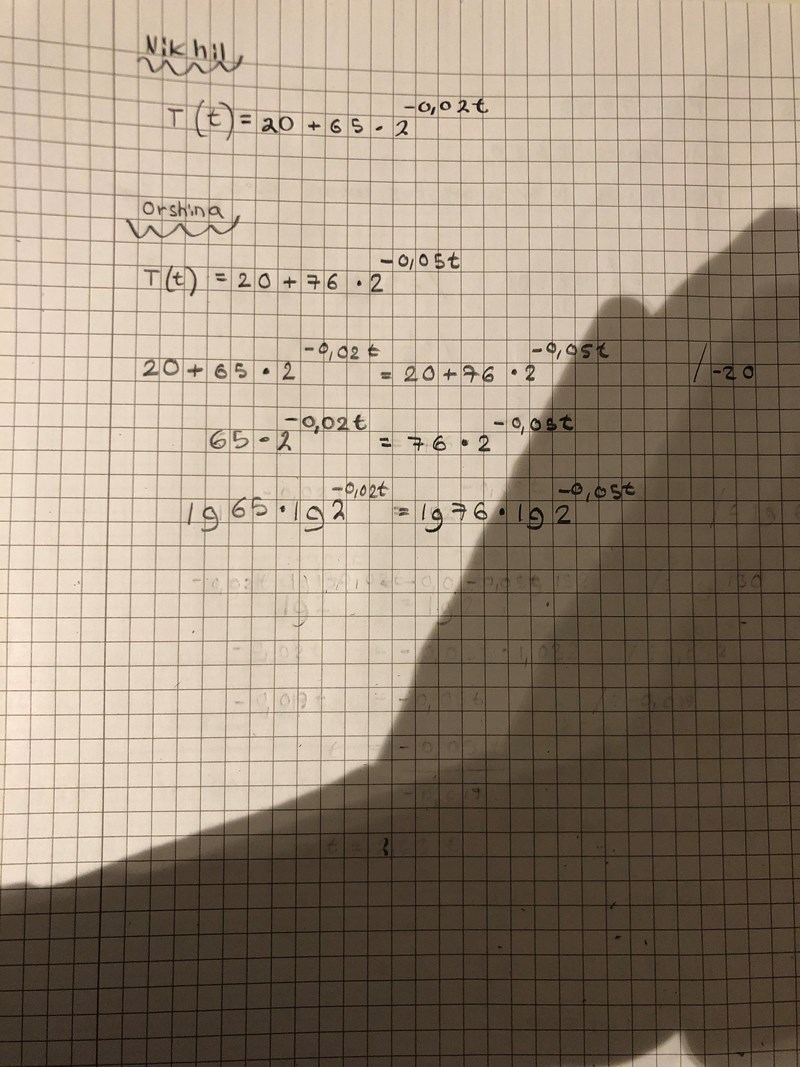 Nikhil
T(t) = 20 + 65 · 2^-0,02t
Orshina
T(t) = 20 + 76 · 2^-0,05t
20 + 65 · 2^-0,02t = 20 + 76 · 2^-0,05t /-20
65 · 2^-0,02t = 76 · 2^-0,05t
lg 65 · lg 2^-0,02t = lg 76 · lg 2^-0,05t